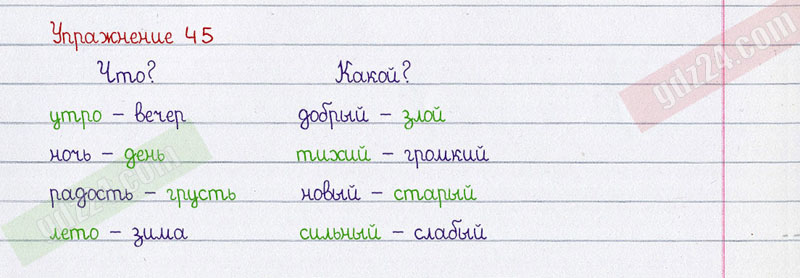 Упражнение 45
Что? Какой?
утро – вечер добрый – злой
ночь – день тихий – громкий
радость – грусть новый – старый
лето – зима сильный – слабый
gdz24.com
gdz24.com